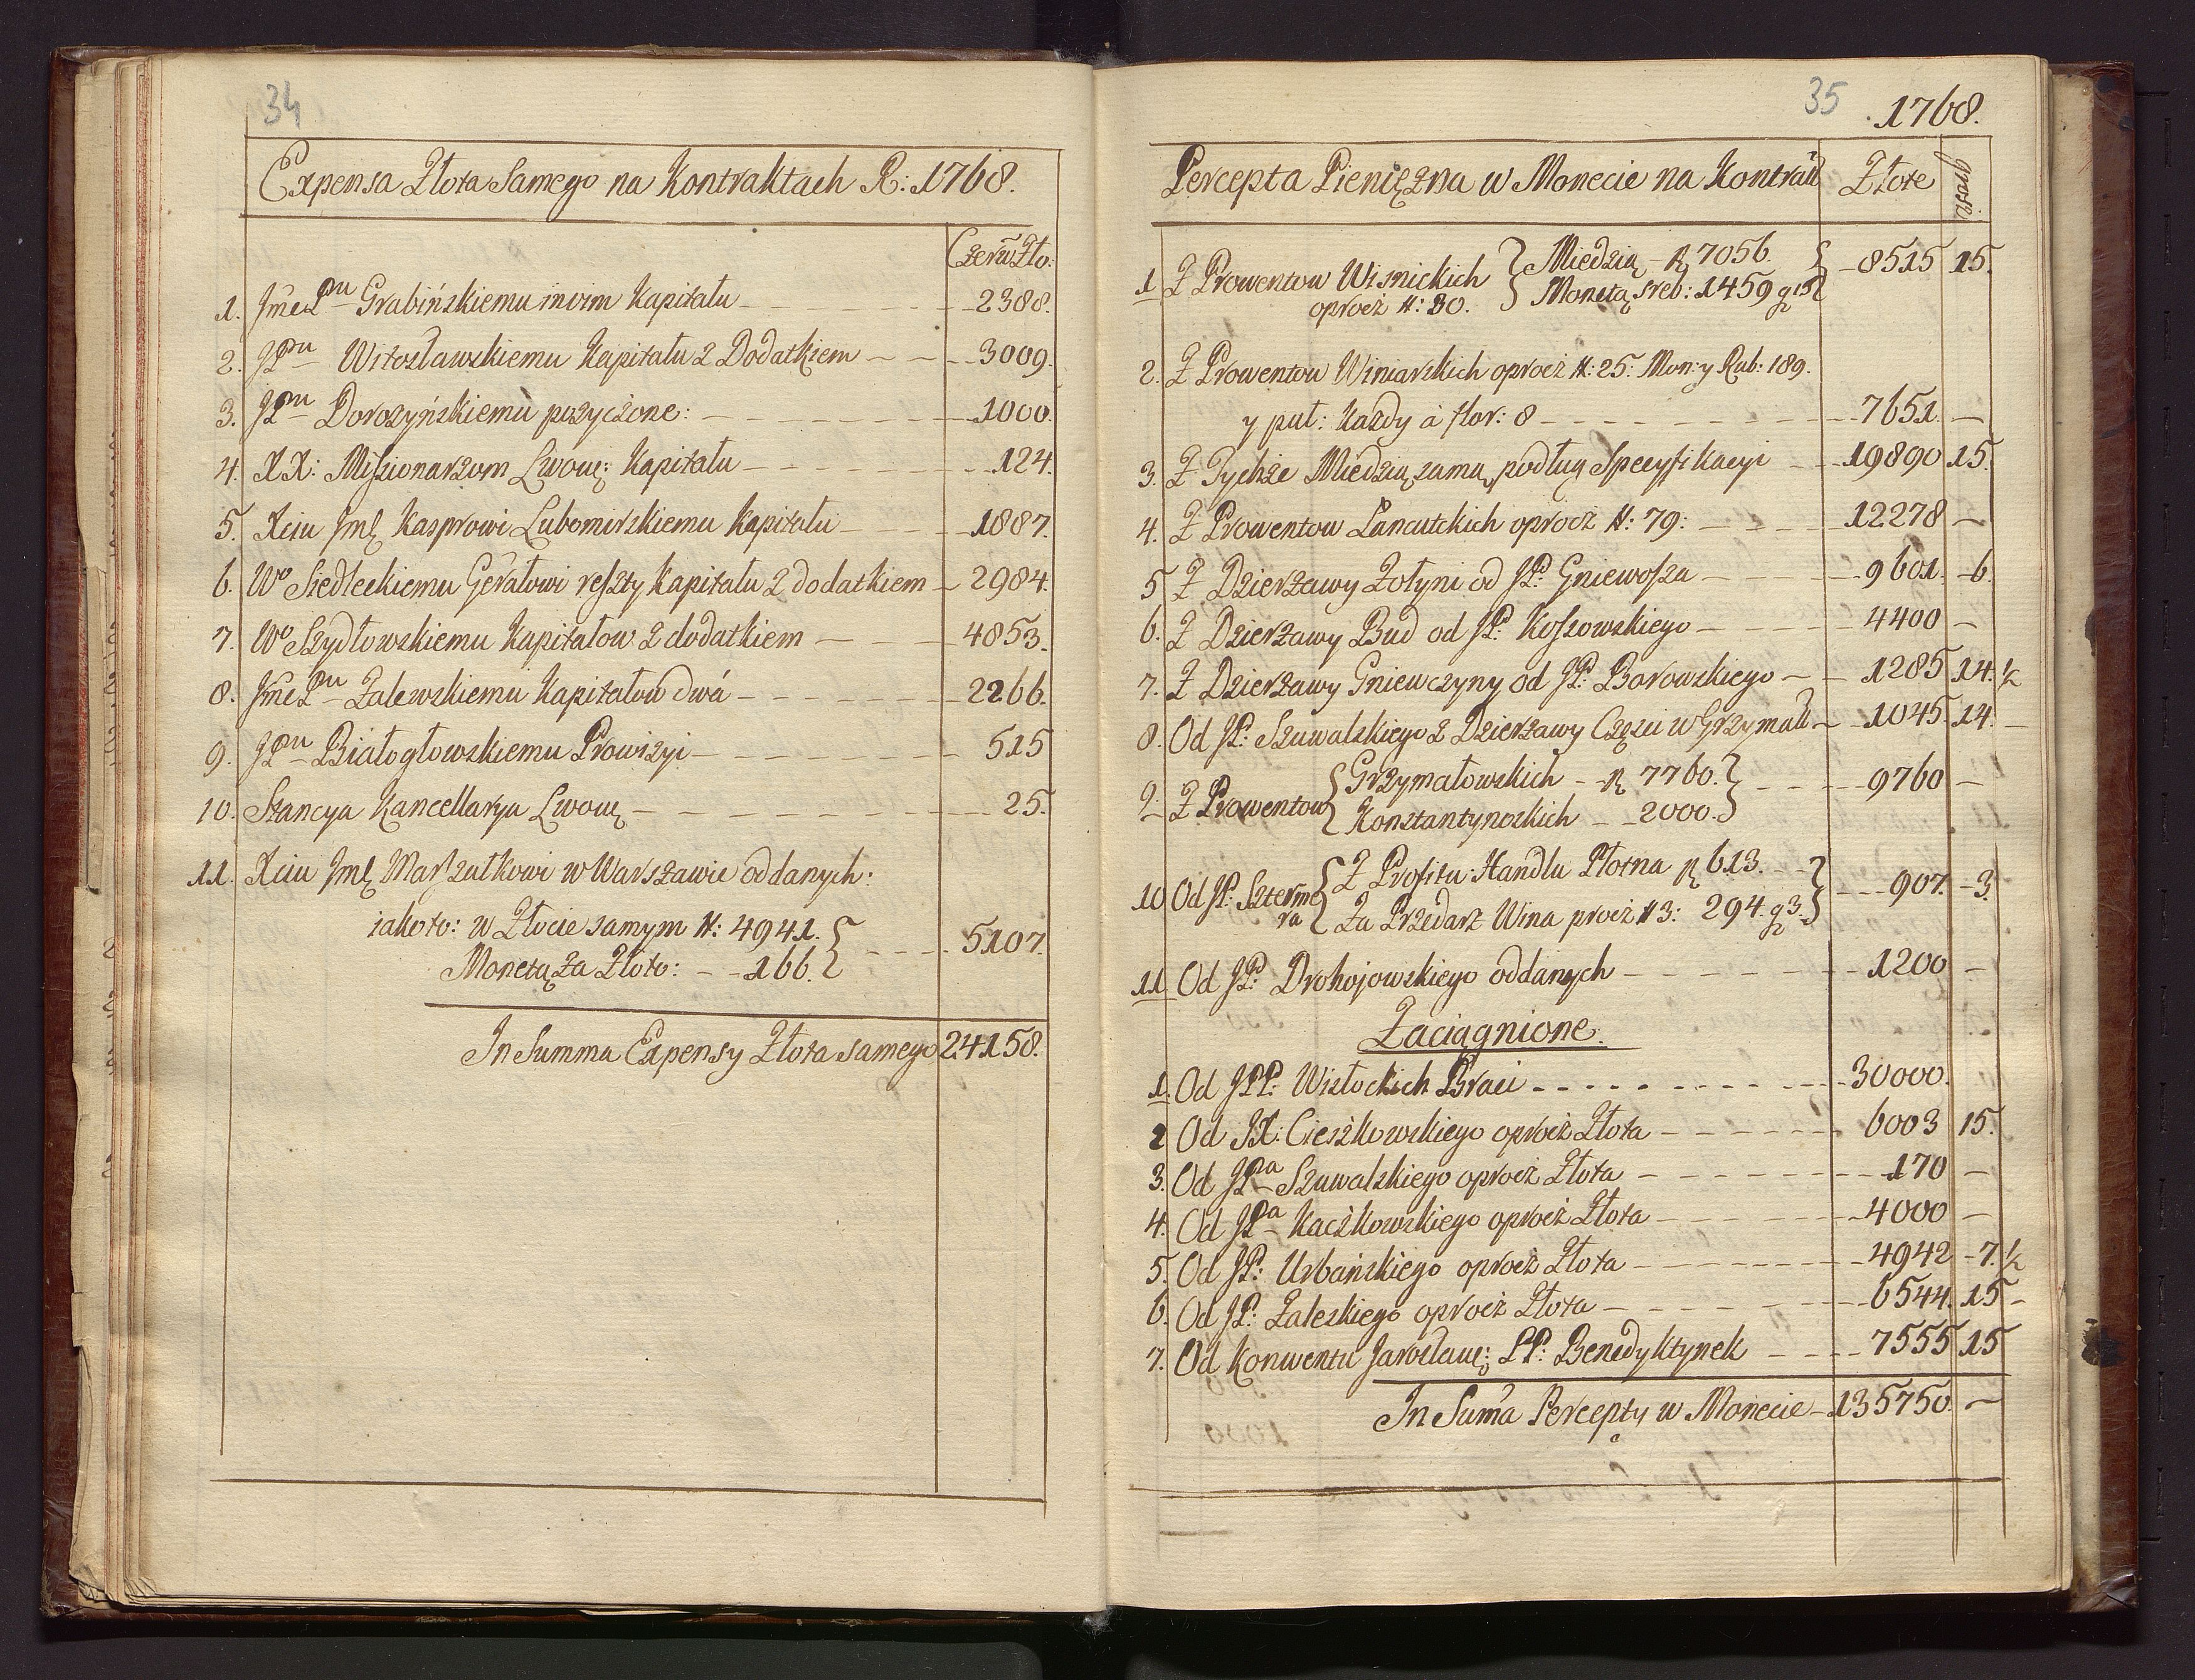 34
Expensa Złota Samego na Kontraktach R: 1768.
Czerw̃ Zło:
1. JmePnu Grabińskiemu inoim Kapitału - 2388.
2. JPnu Witosławskiemu Kapitału z Dodatkiem - 3009.
3. JPnu Dorożyńskiemu pożyczone: - 1000.
4. XX: Missionarzom Lwow: Kapitału - 124.
5. Xciu Jmć Kasprowi Lubomirskiemu Kapitału - 1887.
6. Wo Siedleckiemu Gerałowi reszty Kapitału z dodatkiem - 2984.
7. Wo Szydłowskiemu Kapitałow z dodatkiem - 4853.
8. JmePnu Zalewskiemu Kapitałow dwá - 2266.
9. JPnu Białogłowskiemu Prowizyi - 515
10. Stancya Kancellarya Lwow - 25.
11. Xciu Jmć Marszałkowi w Warszawie oddanych:
iakoto: w Złocie samym #: 4941.
Monetą za Złoto: - 166. - 5107.
In Summa Expensy Złota samego 24158.
35
1768.
Percepta Pieniężna w Monecie na Kontrak̃ Złote grosz
1 Z Prowentow Wisnickich Miedzią - fl 7056. - 8515 15.
oprocz #: 30. Monetą sreb: 1459 g 15
2. Z Prowentow Winiarskich oprocz #: 25: Mon: y Rub: 189.
y puł: Każdy à flor: 8 - 7651. -
3. Z Tychże Miedzią samą podług Specyfikacyi - 19890 15.
4. Z Prowentow Lancutckich oprocz #: 79: - 12278 -
5 Z Dzierżawy Zołyni od JP: Gniewosza - 9601. - 6.
6. Z Dzierżawy Bud od JP: Kossowskiego - 4400 -
7. Z Dzierżawy Gniewczyny od JP: Borowskiego - 1285 14. ½
8. Od JP: Szuwalskiego z Dzierżawy Części w Grzymał̃ - 1045 14. -
9. Z Prowentow Grzymałowskich - fl 7760. - 9760 -
Konstantynoskich - 2000.
10 Od JP: Szterme Z Profitu Handlu Płotna fl 613. - 907. - 3.
ra Za Przedarz Wina procz #3: 294. g 3.
11 Od JP: Drohojowskiego oddanych - 1200 -
Zaciągnione.
1. Od JPP: Wisłockich Braci - 30000.
2 Od JX: Cieszkowskiego oprocz Złota - 6003 15.
3. Od JPa Szuwalskiego oprocz Złota - 170 -
4. Od JPa Kaczkowskiego oprocz Złota - 4000 -
5. Od JP: Urbańskiego oprocz Złota - 4942 - 7. ½
6. Od JP: Zaleskiego oprocz Złota - 6544. 15 -
7. Od Konwentu Jarosław: PP: Benedyktynek - 7555 15
In Sum̃a Percepty w Monecie - 135750. -